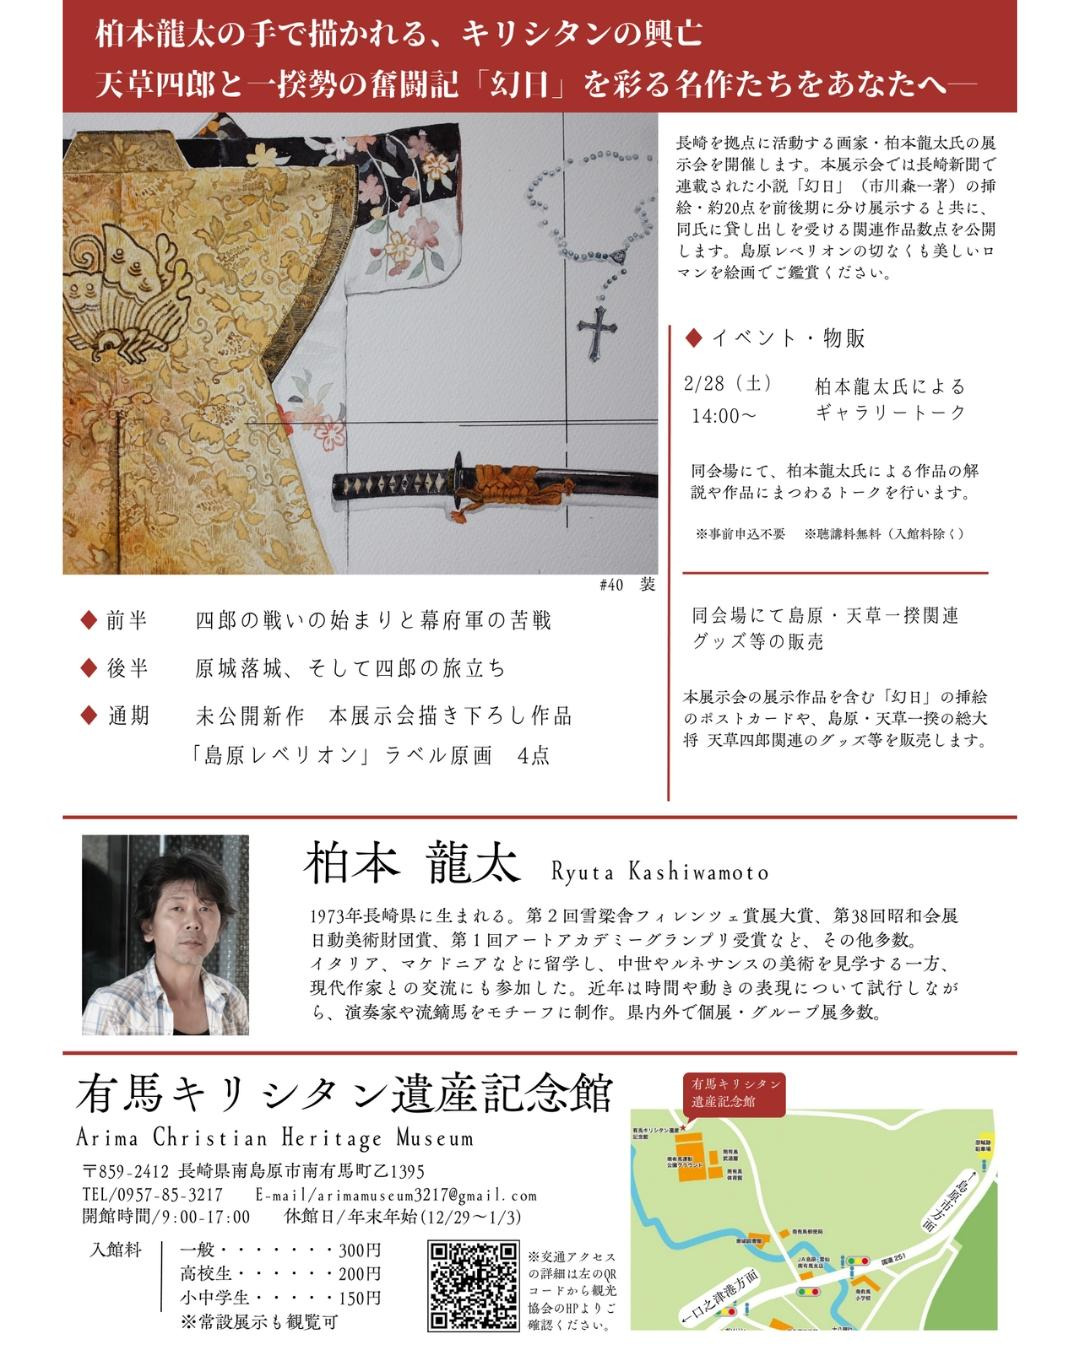 柏本龍太の手で描かれる、キリシタンの興亡
天草四郎と一揆勢の奮闘記「幻日」を彩る名作たちをあなたへ―
長崎を拠点に活動する画家・柏本龍太氏の展
示会を開催します。本展示会では長崎新聞で
連載された小説「幻日」（市川森一著）の挿
絵・約20点を前後期に分け展示すると共に、
同氏に貸し出しを受ける関連作品数点を公開
します。島原レベリオンの切なくも美しいロ
マンを絵画でご鑑賞ください。
◆ イベント・物販
2/28（土）
14:00～
柏本龍太氏による
ギャラリートーク
同会場にて、柏本龍太氏による作品の解
説や作品にまつわるトークを行います。
※事前申込不要　※聴講料無料（入館料除く）
同会場にて島原・天草一揆関連
グッズ等の販売
本展示会の展示作品を含む「幻日」の挿絵
のポストカードや、島原・天草一揆の総大
将 天草四郎関連のグッズ等を販売します。
#40　装
◆ 前半　四郎の戦いの始まりと幕府軍の苦戦
◆ 後半　原城落城、そして四郎の旅立ち
◆ 通期　未公開新作　本展示会描き下ろし作品
「島原レベリオン」ラベル原画　4点
柏本 龍太　Ryuta Kashiwamoto
1973年長崎県に生まれる。第２回雪梁舎フィレンツェ賞展大賞、第38回昭和会展
日動美術財団賞、第１回アートアカデミーグランプリ受賞など、その他多数。
イタリア、マケドニアなどに留学し、中世やルネサンスの美術を見学する一方、
現代作家との交流にも参加した。近年は時間や動きの表現について試行しなが
ら、演奏家や流鏑馬をモチーフに制作。県内外で個展・グループ展多数。
有馬キリシタン遺産記念館
Arima Christian Heritage Museum
〒859-2412 長崎県南島原市南有馬町乙1395
TEL/0957-85-3217　E-mail/arimamuseum3217@gmail.com
開館時間/9:00-17:00　休館日/年末年始(12/29～1/3)
入館料
一般・・・・・・・300円
高校生・・・・・・200円
小中学生・・・・・150円
※常設展示も観覧可
※交通アクセス
の詳細は左のQR
コードから観光
協会のHPよりご
確認ください。
有馬キリシタン
遺産記念館
有馬キリシタン遺産
記念館
南有馬運動
公園グラウンド
南有馬
武道館
南有馬
体育館
原城跡
駐車場
島原市方面
原城図書館
南有馬郵便局
JA島原・雲仙
南有馬支店
国道 251
南有馬
小学校
口之津港方面